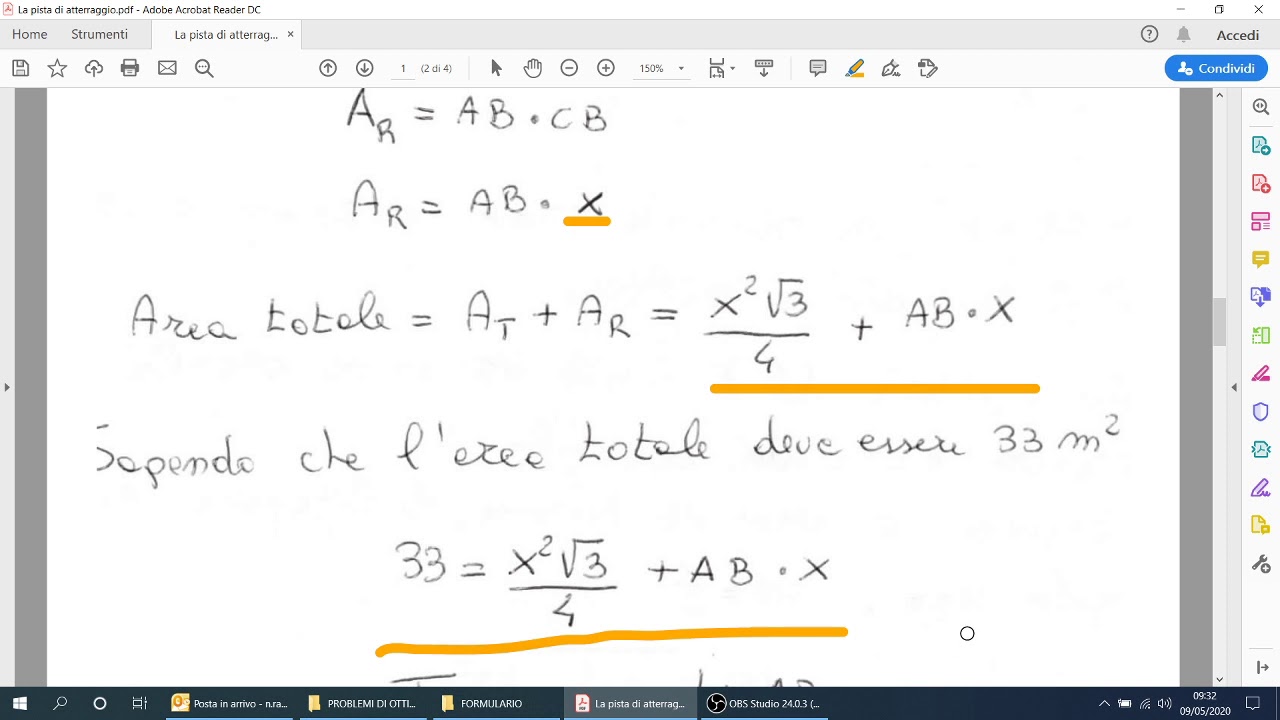 La pista di atterraggio.pdf - Adobe Acrobat Reader DC
Home Strumenti La pista di atterrag... × Accedi
1 (2 di 4) 150% Condividi
A_R = AB · CB
A_R = AB · x
Area totale = A_T + A_R = x²√3/4 + AB · x
Sapendo che l'area totale deve essere 33 m²
33 = x²√3/4 + AB · x
Posta in arrivo - n.ra... PROBLEMI DI OTTI... FORMULARIO La pista di atterrag... OBS Studio 24.0.3 (... 09:32
09/05/2020